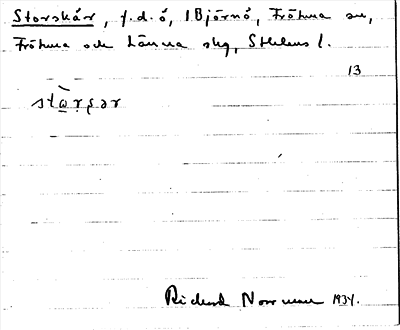 Storskär, f.d. ö, i Björnö, Frötuna sn,
Frötuna och Länna skg, Sthlms l.
13
Rickard Norrman 1934.